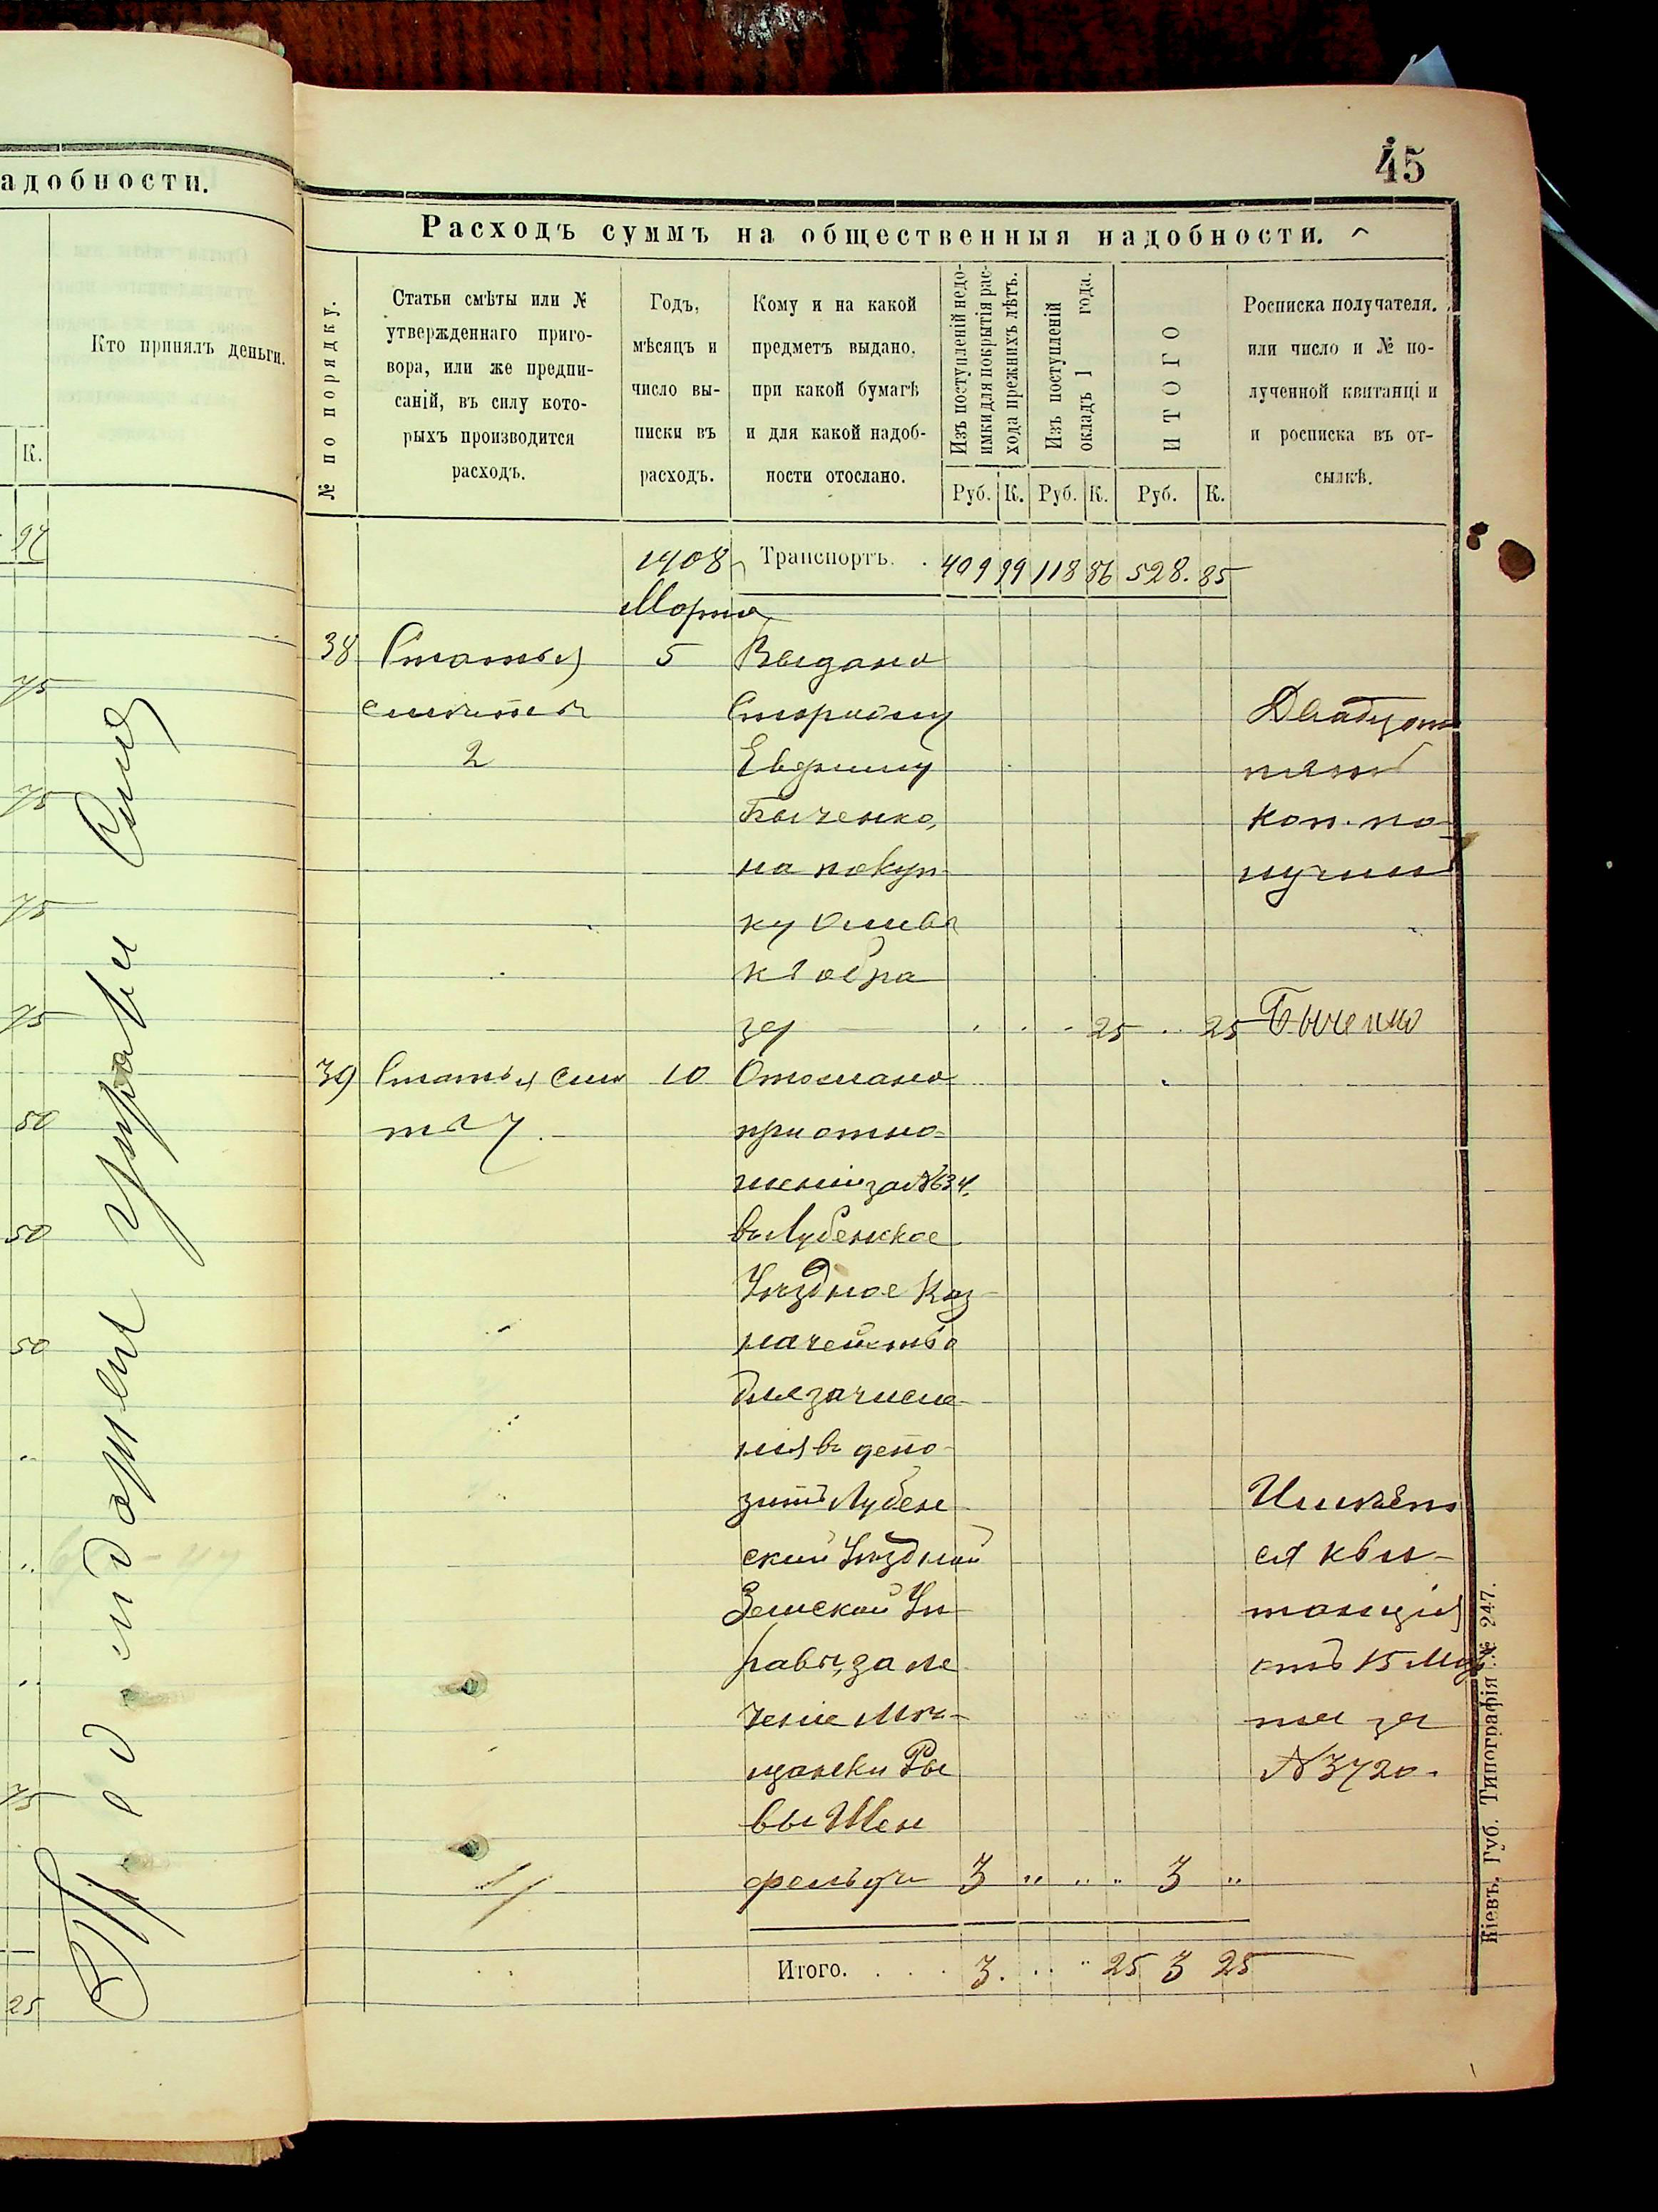 адобности.
Кто принялъ деньги.
К.
94
75
75
75
75
50
50
50
75
25
45
Расходъ суммъ на общественныя надобности.
№ по порядку.
Статьи смѣты или №
утвержденнаго приго-
вора, или же предпи-
саній, въ силу кото-
рыхъ производится
расходъ.
Годъ,
мѣсяцъ и
число вы-
писки въ
расходъ.
Кому и на какой
предметъ выдано,
при какой бумагѣ
и для какой надоб-
ности отослано.
Изъ поступленій недо-
имки для покрытія рас-
хода прежнихъ лѣтъ.
Изъ поступленій
окладъ 1 года.
ИТОГО
Росписка получателя.
или число и № по-
лученной квитанціи
и росписка въ от-
сылкѣ.
Руб. К. Руб. К. Руб. К.
1908 Транспортъ. 409 99 118 86 528. 85
Марта
38 Статья 5 Выдано
смѣты Сторожу Двадцать
2 Евфиму пять
Быченко, коп. по-
на покуп- лучилъ
ку Оливы
къ обра
зу 25 25 Быченко
39 Статья смѣ 10 Отослано
ты 7. при отно-
шеніи за №634.
въ Лубенское
Уѣздное Каз
начейство
для зачисле-
нія въ депо-
зитъ Лубен
ской Уѣздной
Земской Уп-
равы, за ле
ченіе Мѣ-
щанки Ры
вы Шен
фельдъ 3 " " " 3 "
Имѣет
ся кви-
танція
отъ 15 Мар
та за
№ 3720.
Итого. 3. 25 3 25
Кіевъ. Губ. Типографія № 247.